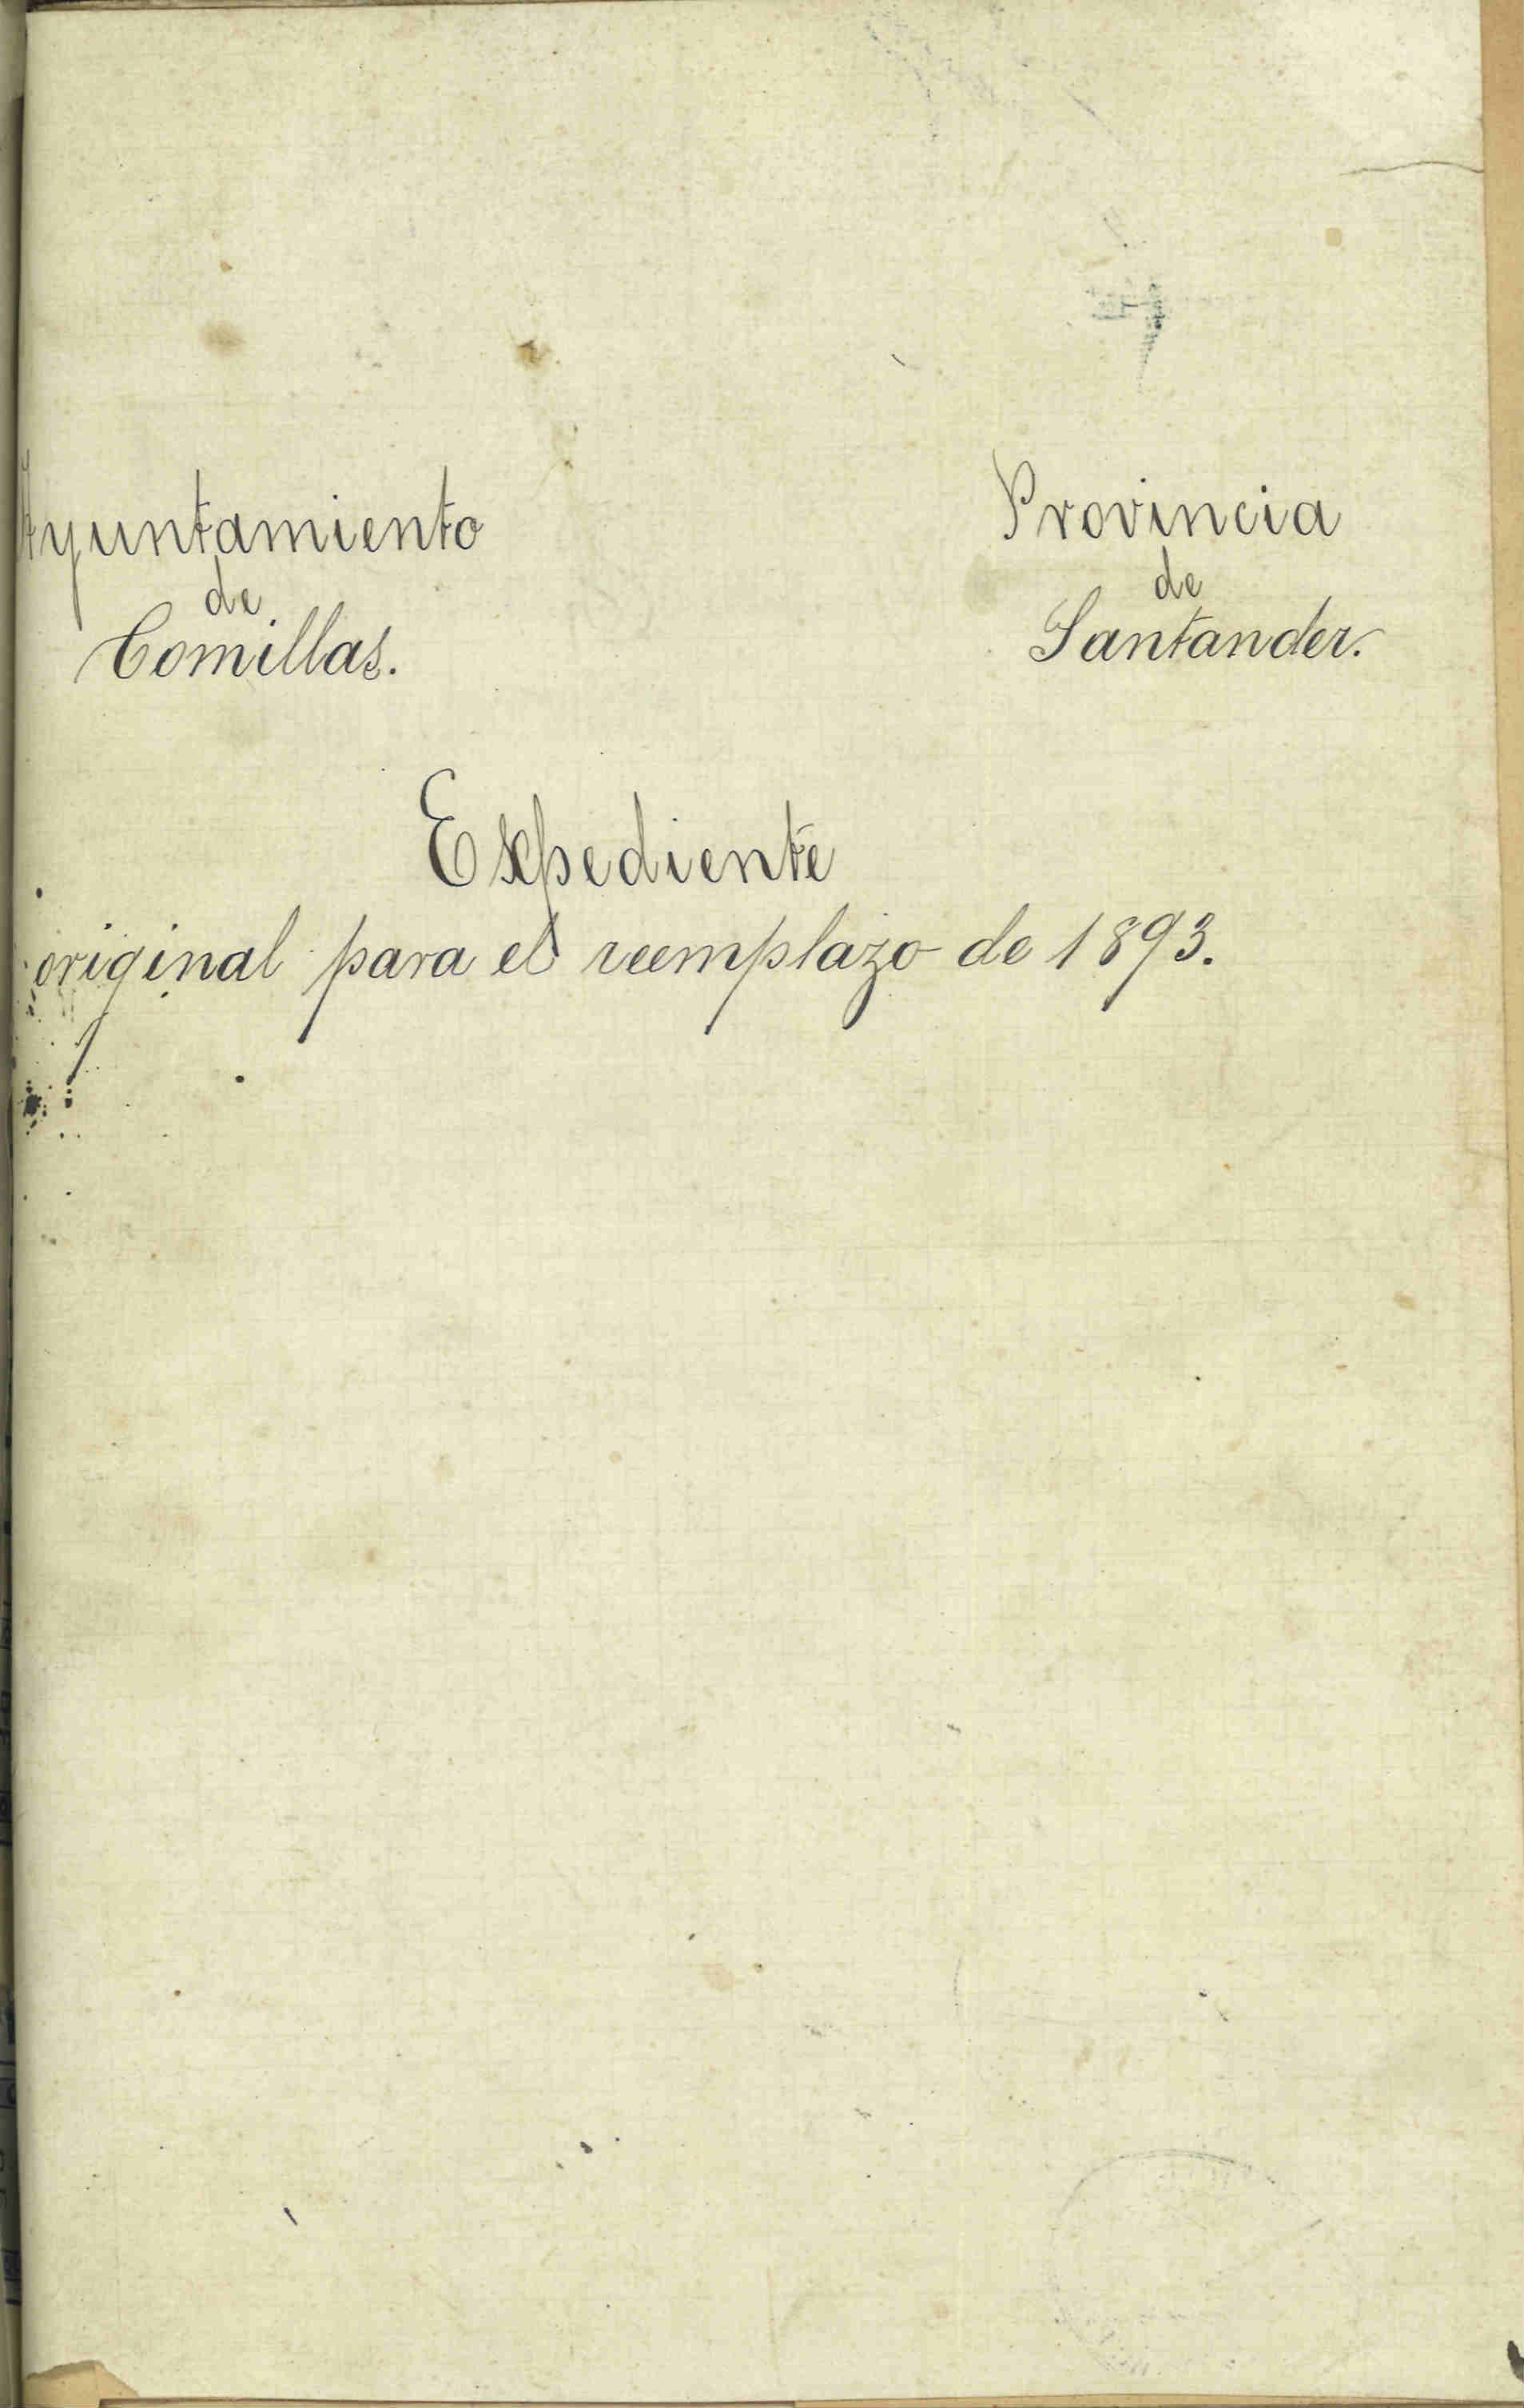 Ayuntamiento
de
Comillas.
Provincia
de
Santander.
Expediente
original para el reemplazo de 1893.